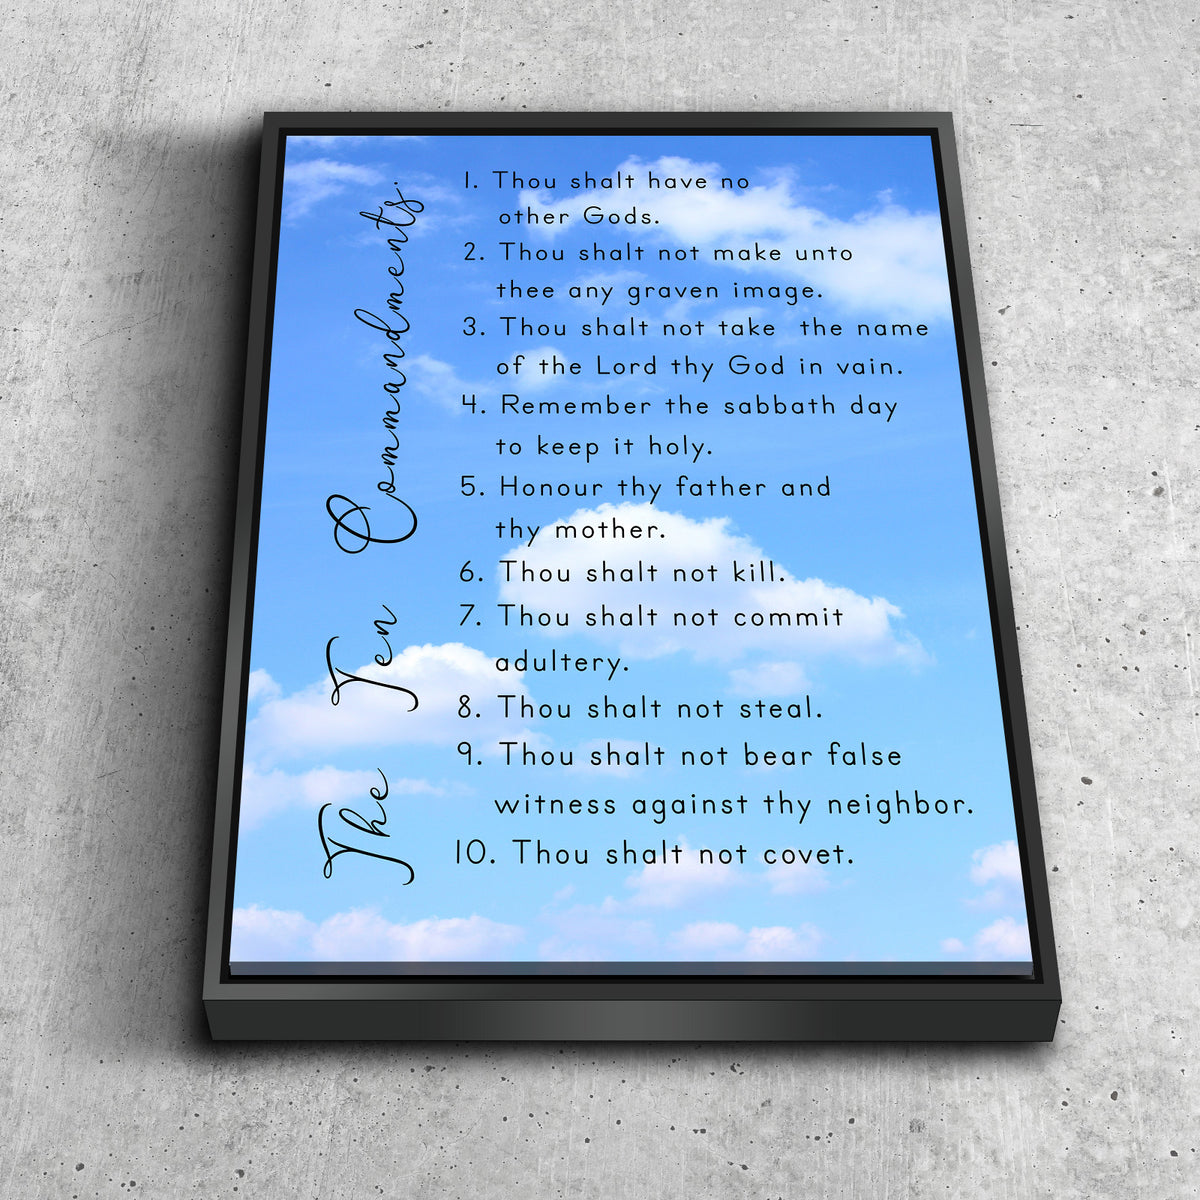 The Ten Commandments.
1. Thou shalt have no
other Gods.
2. Thou shalt not make unto
thee any graven image.
3. Thou shalt not take the name
of the Lord thy God in vain.
4. Remember the sabbath day
to keep it holy.
5. Honour thy father and
thy mother.
6. Thou shalt not kill.
7. Thou shalt not commit
adultery.
8. Thou shalt not steal.
9. Thou shalt not bear false
witness against thy neighbor.
10. Thou shalt not covet.